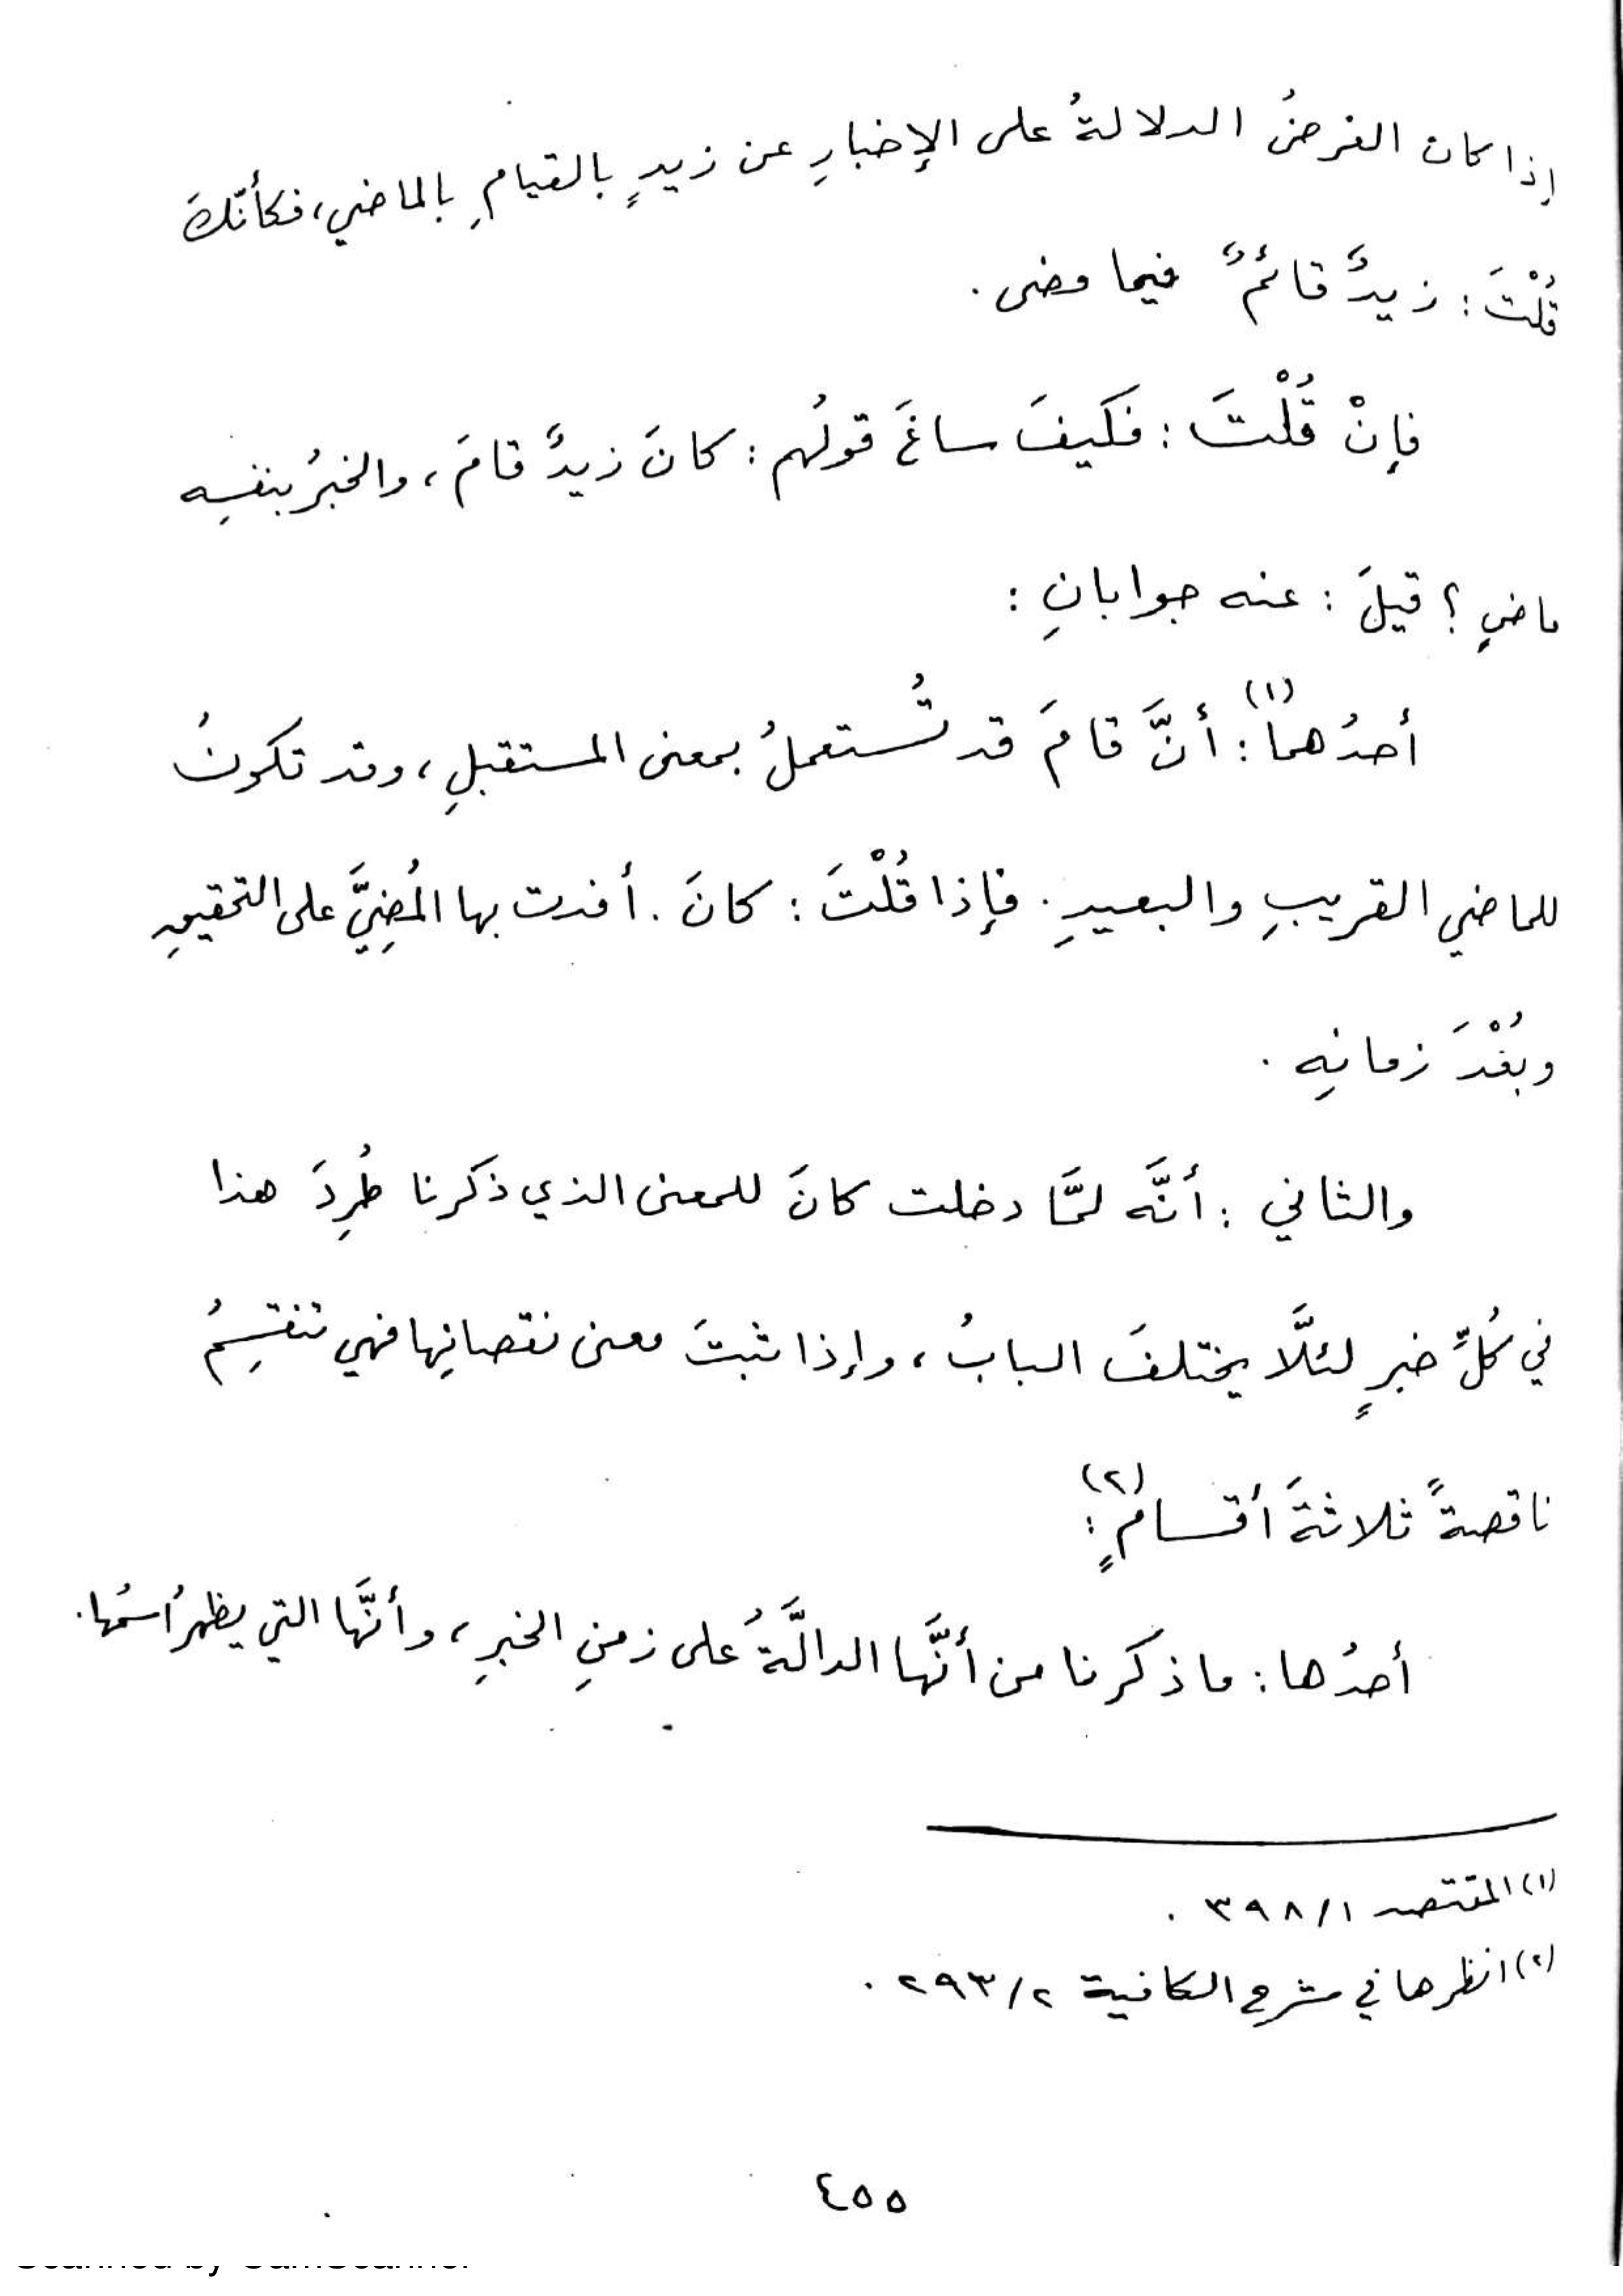 إذا كان الغرضُ الدلالةُ على الإخبارِ عن زيدٍ بالقيامِ بالماضي، فكأنَّكَ
قُلْتَ : زيدٌ قائمٌ فيما مضى .
فإنْ قُلْتَ : فكَيفَ ساغَ قولُهم : كانَ زيدٌ قامَ ، والخبرُ بنفسِه
ماضٍ ؟ قيلَ : عنه جوابانِ :
أحدُهما(١) : أنَّ قامَ قد تُستعملُ بمعنى المستقبلِ ، وقد تكونُ
للماضي القريبِ والبعيدِ . فإذا قُلْتَ : كانَ . أفدت بها المُضِيَّ على التحقيقِ
وبُعْدَ زمانِه .
والثاني : أنَّه لمَّا دخلت كانَ للمعنى الذي ذكَرنا طُرِدَ هذا
في كُلِّ خبرٍ لئلَّا يختلفَ البابُ ، وإذا ثبتَ معنى نقصانِها فهي تنقسِمُ
ناقصةً ثلاثةَ أقسامٍ(٢) :
أحدُها : ما ذكرنا من أنَّها الدالَّةُ على زمنِ الخبرِ ، وأنَّها التي يظهرُ اسمُها .
(١) المقتصد ٣٩٨/١ .
(٢) انظرها في شرح الكافية ٢٩٣/٢ .
٤٥٥